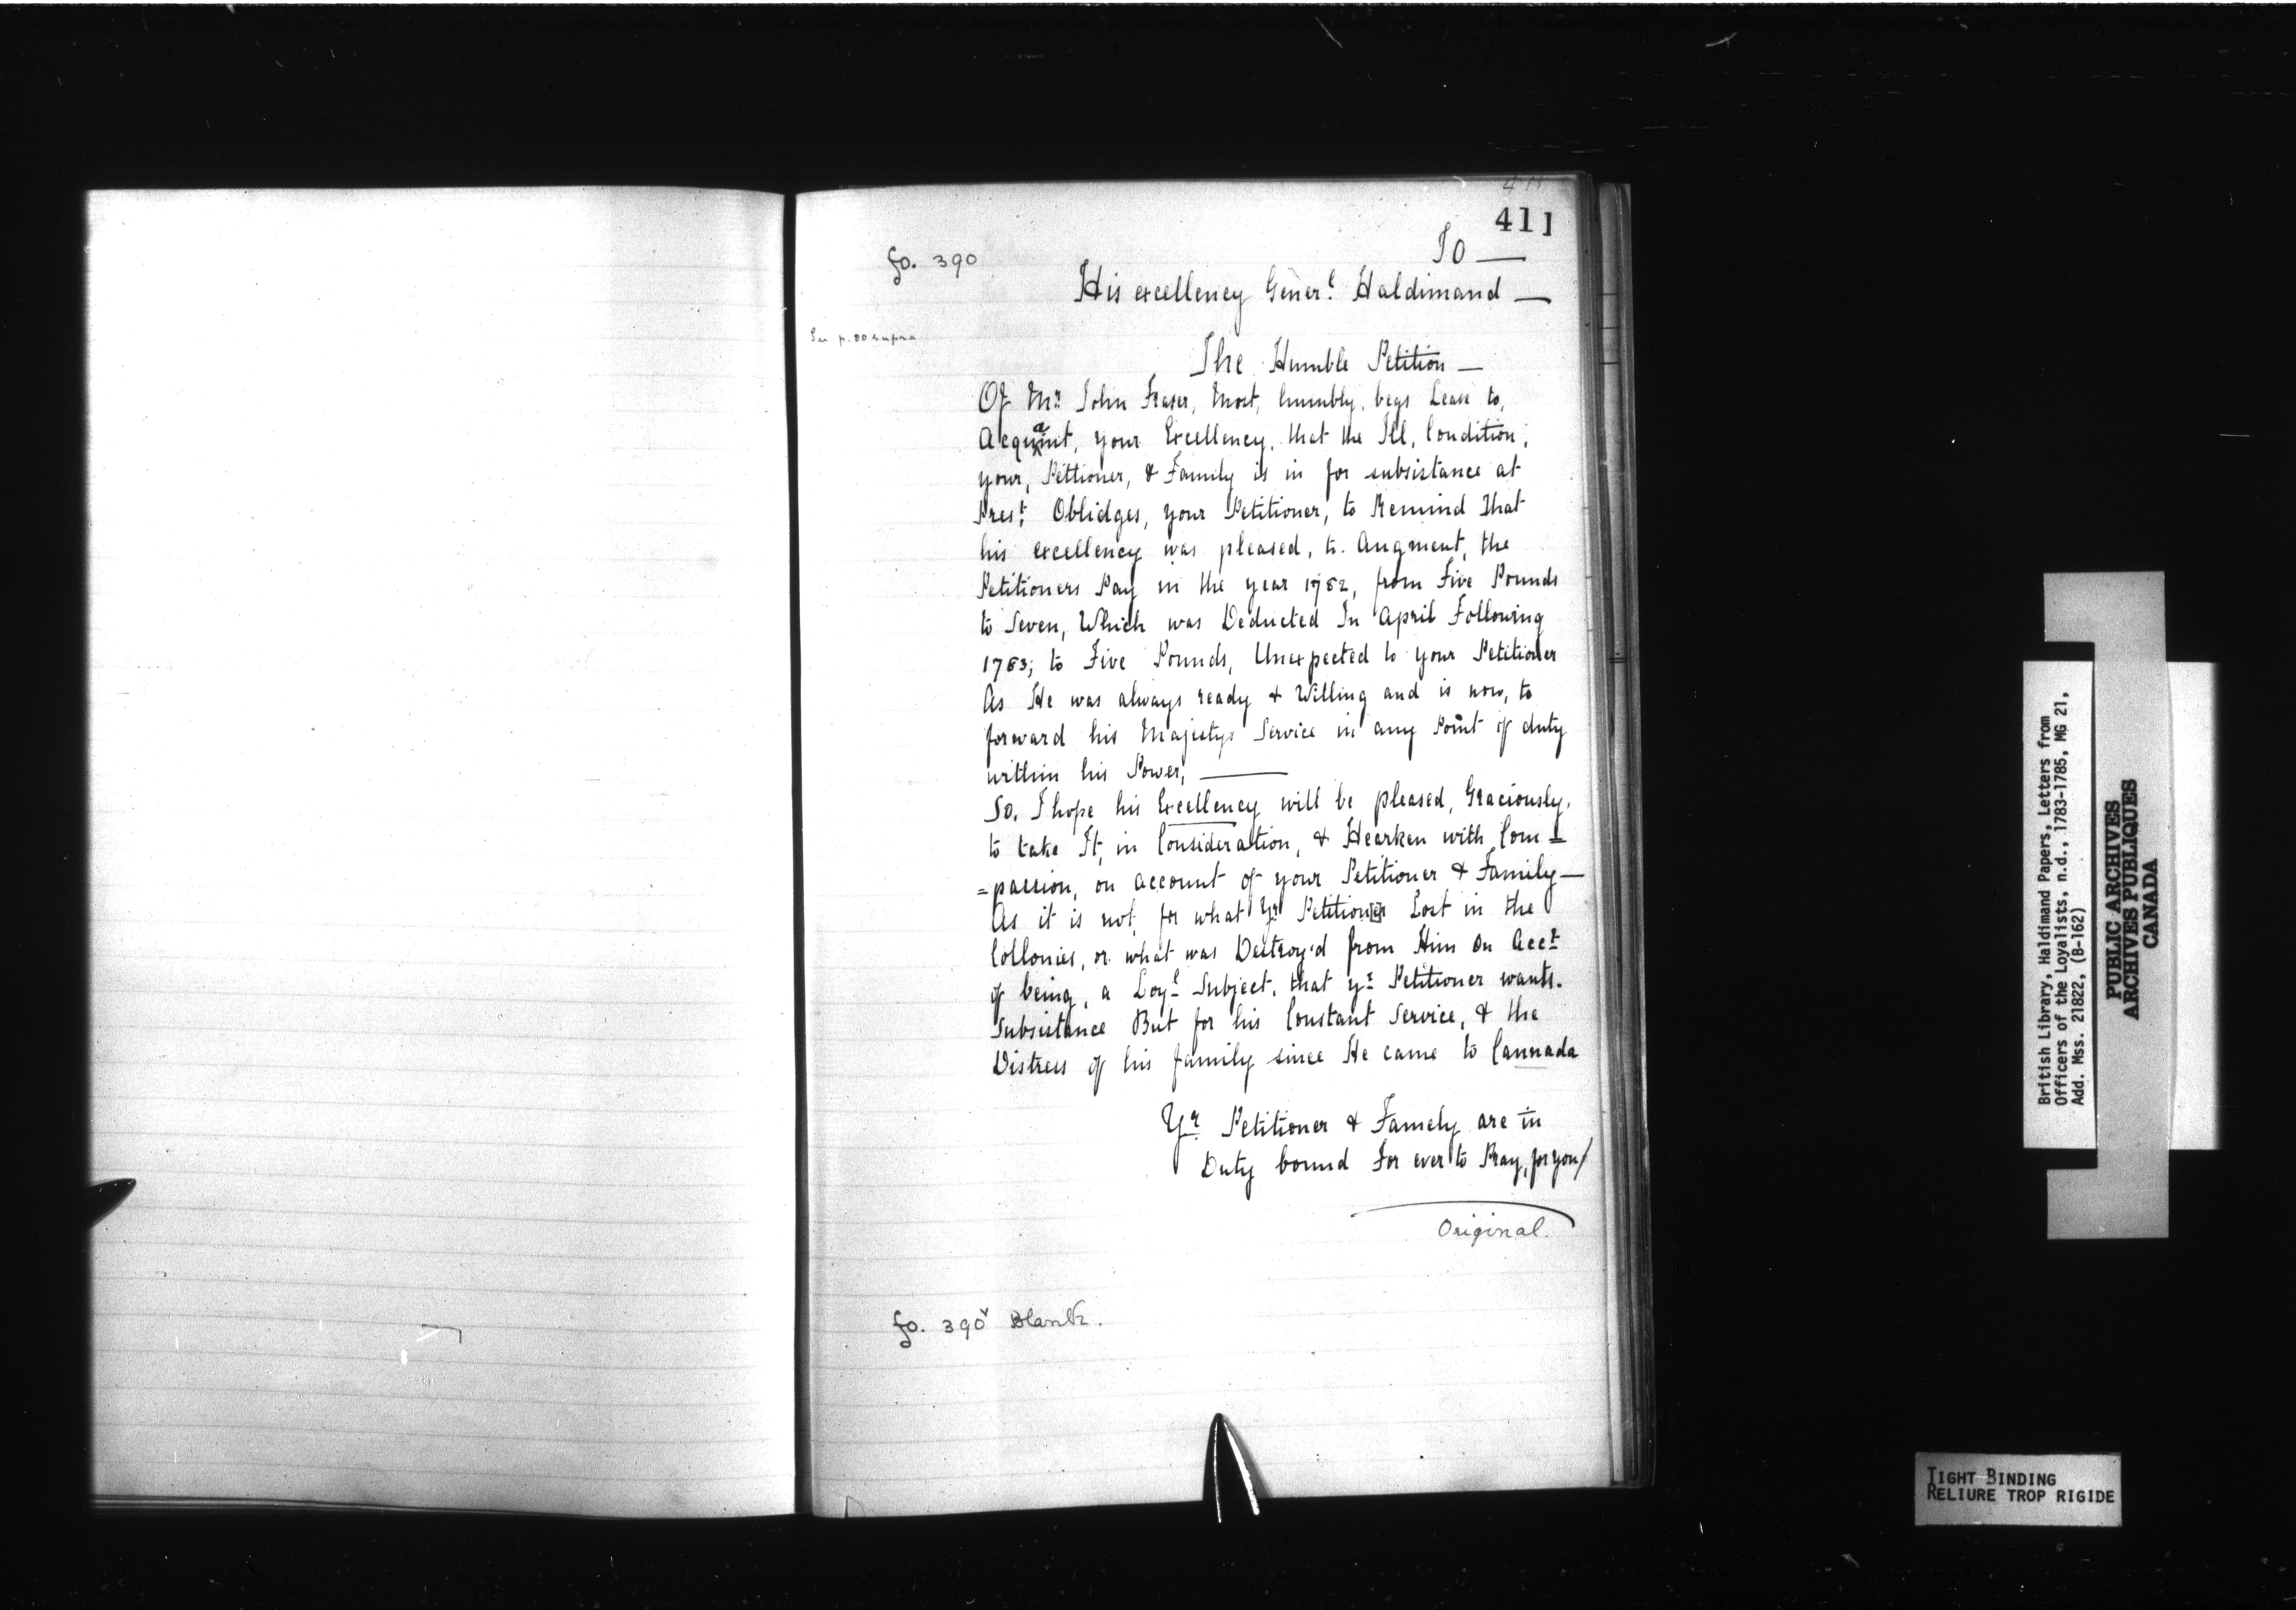 411
To —
fo. 390
His excellency Gener.l Haldimand —
The Humble Petition —
Of Mr. John Fraser, Most, humbly, begs Leave to,
Acquaint, your Excellency, that the Ill, Condition,
your, Petitioner, & Family is in for subsistance at
Pres.t Oblidges, your Petitioner, to Remind That
his excellency was pleased, to Augment, the
Petitioners Pay in the year 1782, from Five Pounds
to Seven, Which was Deducted In April Following
1783; to Five Pounds, Unexpected to your Petitioner
As He was always ready & Willing and is now, to
forward his Majestys Service in any Point of duty
within his Power, —
So, I hope his Excellency will be pleased, Graciously,
to take It, in Consideration, & Hearken with Com=
=passion, on account of your Petitioner & Family —
As it is not, for what Yr Petition[e]r Lost in the
Collonies, or what was Destroy'd from Him on Acct
of being, a Loyl Subject, that yr Petitioner wants.
Subsistance But for his Constant Service, & the
Distress of his family since He came to Cannada
Yr Petitioner & Famely are in
Duty bound For ever to Pray, for you/
Original.
fo. 390v Blank.
British Library, Haldimand Papers, Letters from
Officers of the Loyalists, n.d., 1783-1785, MG 21,
Add. Mss. 21822, (B-162)
PUBLIC ARCHIVES
ARCHIVES PUBLIQUES
CANADA
TIGHT BINDING
RELIURE TROP RIGIDE